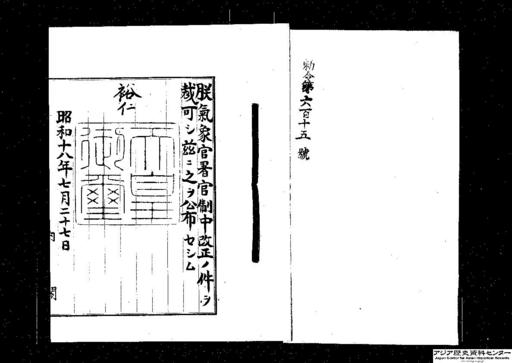 勅令第六百十五號
朕氣象官署官制中改正ノ件ヲ
裁可シ茲ニ之ヲ公布セシム
裕仁
天皇御璽
昭和十八年七月二十七日
内閣
アジア歴史資料センター
Japan Center for Asian Historical Records